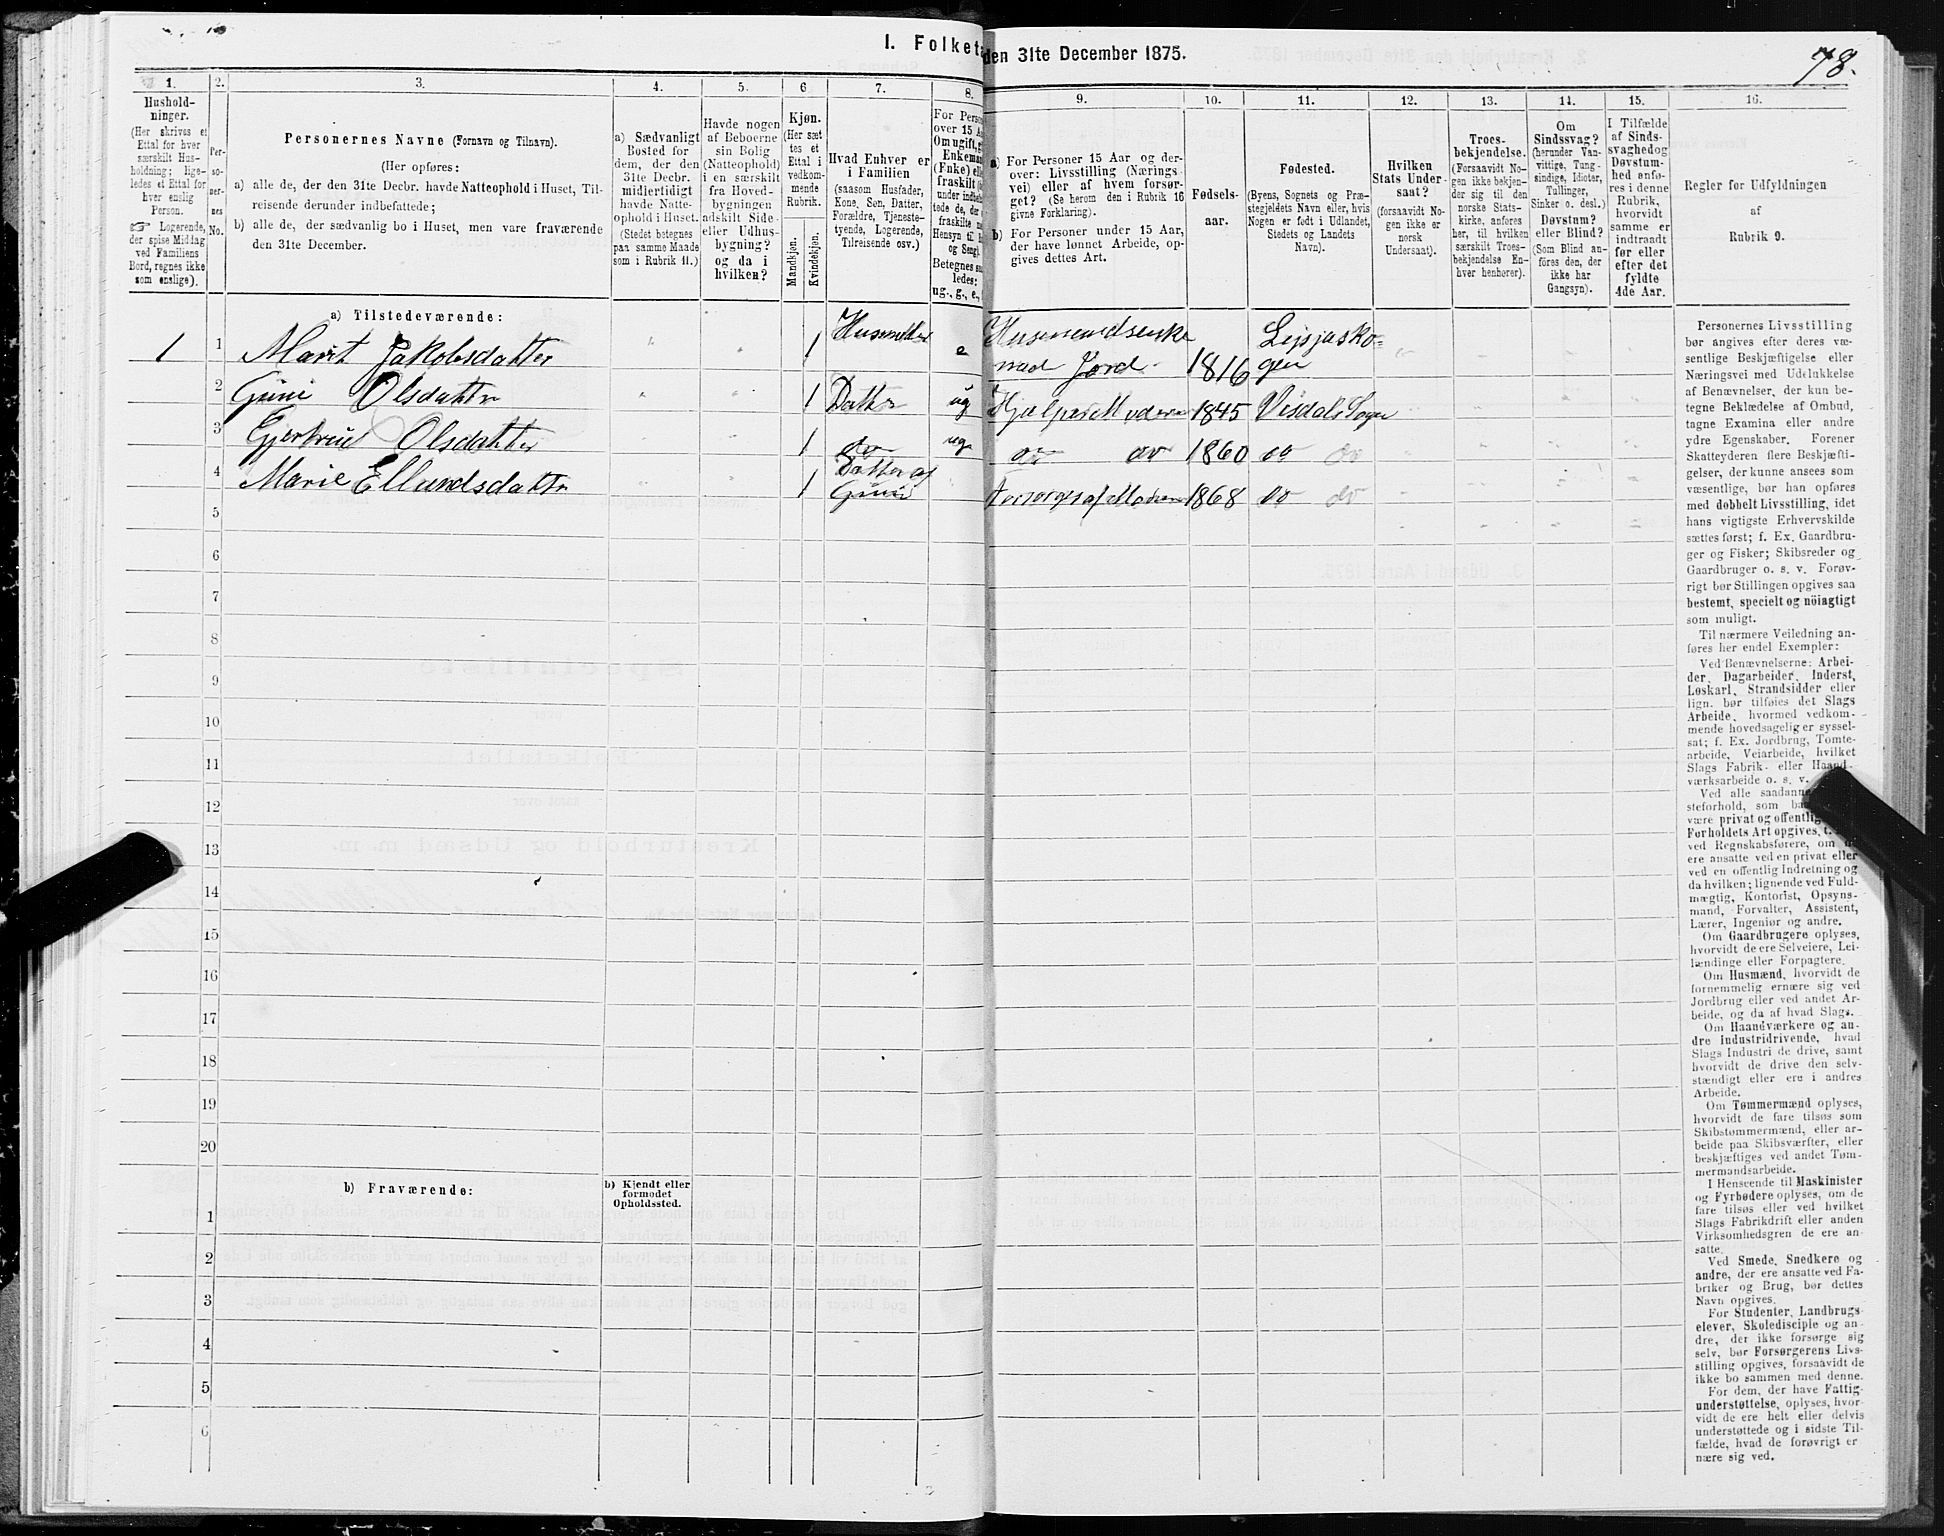 I. Folketæ den 31te December 1875.
78.
1.
2.
3.
4.
5.
6
7.
8.
9.
10.
11.
12.
13.
14.
15.
16.
Hushold-
ninger.
(Her skrives et
Ettal for hver
særskilt Hus-
holdning; lige-
ledes et Ettal for
hver enslig
Person.
☞ Logerende,
der spise Middag
ved Familiens
Bord, regnes ikke
som enslige).
Per-
so-
ner-
nes
No.
Personernes Navne (Fornavn og Tilnavn).
(Her opføres:
a) alle de, der den 31te Decbr. havde Natteophold i Huset, Til-
reisende derunder indbefattede;
b) alle de, der sædvanlig bo i Huset, men vare fraværende
den 31te December.
a) Sædvanligt
Bosted for
dem, der den
31te Decbr.
midlertidigt
havde Natte-
ophold i Huset.
(Stedet betegnes
paa samme Maade
som i Rubrik 11.)
Havde nogen
af Beboerne
sin Bolig
(Natteophold)
i en særskilt
fra Hoved-
bygningen
adskilt Side-
eller Udhus-
bygning?
og da i
hvilken?
Kjøn.
(Her sæt
tes et
Ettal i
vedkom-
mende
Rubrik.
Mandkjøn.
Kvindekjøn.
Hvad Enhver er
i Familien
(saasom Husfader,
Kone, Søn, Datter,
Forældre, Tjeneste-
tyende, Logerende,
Tilreisende osv.)
For Person
over 15 Aa
Om ugift, g
Enkeman
(Enke) elle
fraskilt (
under indbe
tede de, der
fraskilte m
Hensyn til
og Seng).
Betegnes saa
ledes:
ug., g., e.,
a) For Personer 15 Aar og der-
over: Livsstilling (Nærings-
vei) eller af hvem forsør-
get? (Se herom den i Rubrik 16
givne Forklaring).
b) For Personer under 15 Aar,
der have lønnet Arbeide, op-
gives dettes Art.
Fødsels-
aar.
Fødested.
(Byens, Sognets og Præ-
stegjeldets Navn eller, hvis
Nogen er født i Udlandet,
Stedets og Landets
Navn).
Hvilken
Stats Under-
saat?
(forsaavidt No-
gen ikke er
norsk
Undersaat).
Troes-
bekjendelse.
(Forsaavidt No-
gen ikke bekjen-
der sig til den
norske Stats-
kirke, anføres
her, til hvilken
særskilt Troes-
bekjendelse En-
hver henhører).
Om
Sindssvag?
(herunder Van-
vittige, Tung-
sindige, Idioter,
Tullinger,
Sinker o. desl.)
Døvstum?
eller Blind?
(Som Blind an-
føres den, der
ikke har
Gangsyn).
I Tilfælde
af Sinds-
svaghed og
Døvstum-
hed anfø-
res i denne
Rubrik,
hvorvidt
samme er
indtraadt
før eller
efter det
fyldte
4de Aar.
Regler for Udfyldningen
af
Rubrik 9.
a) Tilstedeværende:
1 1 Marit Jakobsdatter 1 Husmoder e Husmandsenke
med Jord. 1816 Lesjasko=
gen
2 Guni Olsdatter 1 Datter ug Hjælper Moderen 1845 Visdals Sogn
3 Gjertrud Olsdatter 1 do ug do do 1860 do do
4 Marie Ellundsdatter 1 Datter af
Guni Forsørges af Moderen 1868 do do
5
6
7
8
9
10
11
12
13
14
15
16
17
18
19
20
b) Fraværende:
b) Kjendt eller
formodet
Opholdssted.
1
2
3
4
5
6
Personernes Livsstilling
bør angives efter deres væ-
sentlige Beskjæftigelse eller
Næringsvei med Udelukkelse
af Benævnelser, der kun be-
tegne Beklædelse af Ombud,
tagne Examina eller andre
ydre Egenskaber. Forener
Skatteyderen flere Beskjæfti-
gelser, der kunne ansees som
væsentlige, bør han opføres
med dobbelt Livsstilling, idet
hans vigtigste Erhvervskilde
sættes først; f. Ex. Gaardbru-
ger og Fisker; Skibsreder og
Gaardbruger o. s. v. Forøv-
rigt bør Stillingen opgives saa
bestemt, specielt og nöiagtigt
som muligt.
Til nærmere Veiledning an-
føres her endel Exempler:
Ved Benævnelserne: Arbei-
der, Dagarbeider, Inderst,
Løskarl, Strandsidder eller
lign. bør tilføies det Slags
Arbeide, hvormed vedkom-
mende hovedsagelig er syssel-
sat; f. Ex. Jordbrug, Tomte-
arbeide, Veiarbeide, hvilket
Slags Fabrik- eller Haand-
værksarbeide o. s. v.
Ved alle saadanne
steforhold, som
være privat og offentlig
Forholdets Art opgives, t.
ved Regnskabsførere, om
ere ansatte ved en privat eller
ved en offentlig Indretning og
da hvilken; lignende ved Fuld-
mægtig, Kontorist, Opsyns-
mand, Forvalter, Assistent,
Lærer, Ingeniør og andre.
Om Gaardbrugere oplyses,
hvorvidt de ere Selveiere, Lei-
lændinge eller Forpagtere.
Om Husmænd, hvorvidt de
fornemmelig ernære sig ved
Jordbrug eller ved andet Ar-
beide, og da af hvad Slags.
Om Haandværkere og an-
dre industridrivende, hvad
Slags Industri de drive, samt
hvorvidt de drive den selv-
stændigt eller ere i andres
Arbeide.
Om Tømmermænd oplyses,
hvorvidt de fare tilsøs som
Skibstømmermænd, eller ar-
beide paa Skibsværfter, eller
beskjæftiges ved andet Tøm-
mermandsarbeide.
I Henseende til Maskinister
og Fyrbødere oplyses, om de
fare tilsøs eller ved hvilket
Slags Fabrikdrift eller anden
Virksomhedsgren de ere an-
satte.
Ved Smede, Snedkere og
andre, der ere ansatte ved Fa-
briker og Brug, bør dettes
Navn opgives.
For Studenter, Landbrugs-
elever, Skoledisciple og an-
dre, der ikke forsørge sig
selv, bør Forsørgerens Livs-
stilling opgives, forsaavidt de
ikke bo sammen med denne.
For dem, der have Fattig-
understøttelse, oplyses, hvor-
vidt de ere helt eller delvis
understøttede og i sidste Til-
fælde, hvad de forøvrigt er
nære sig ved.